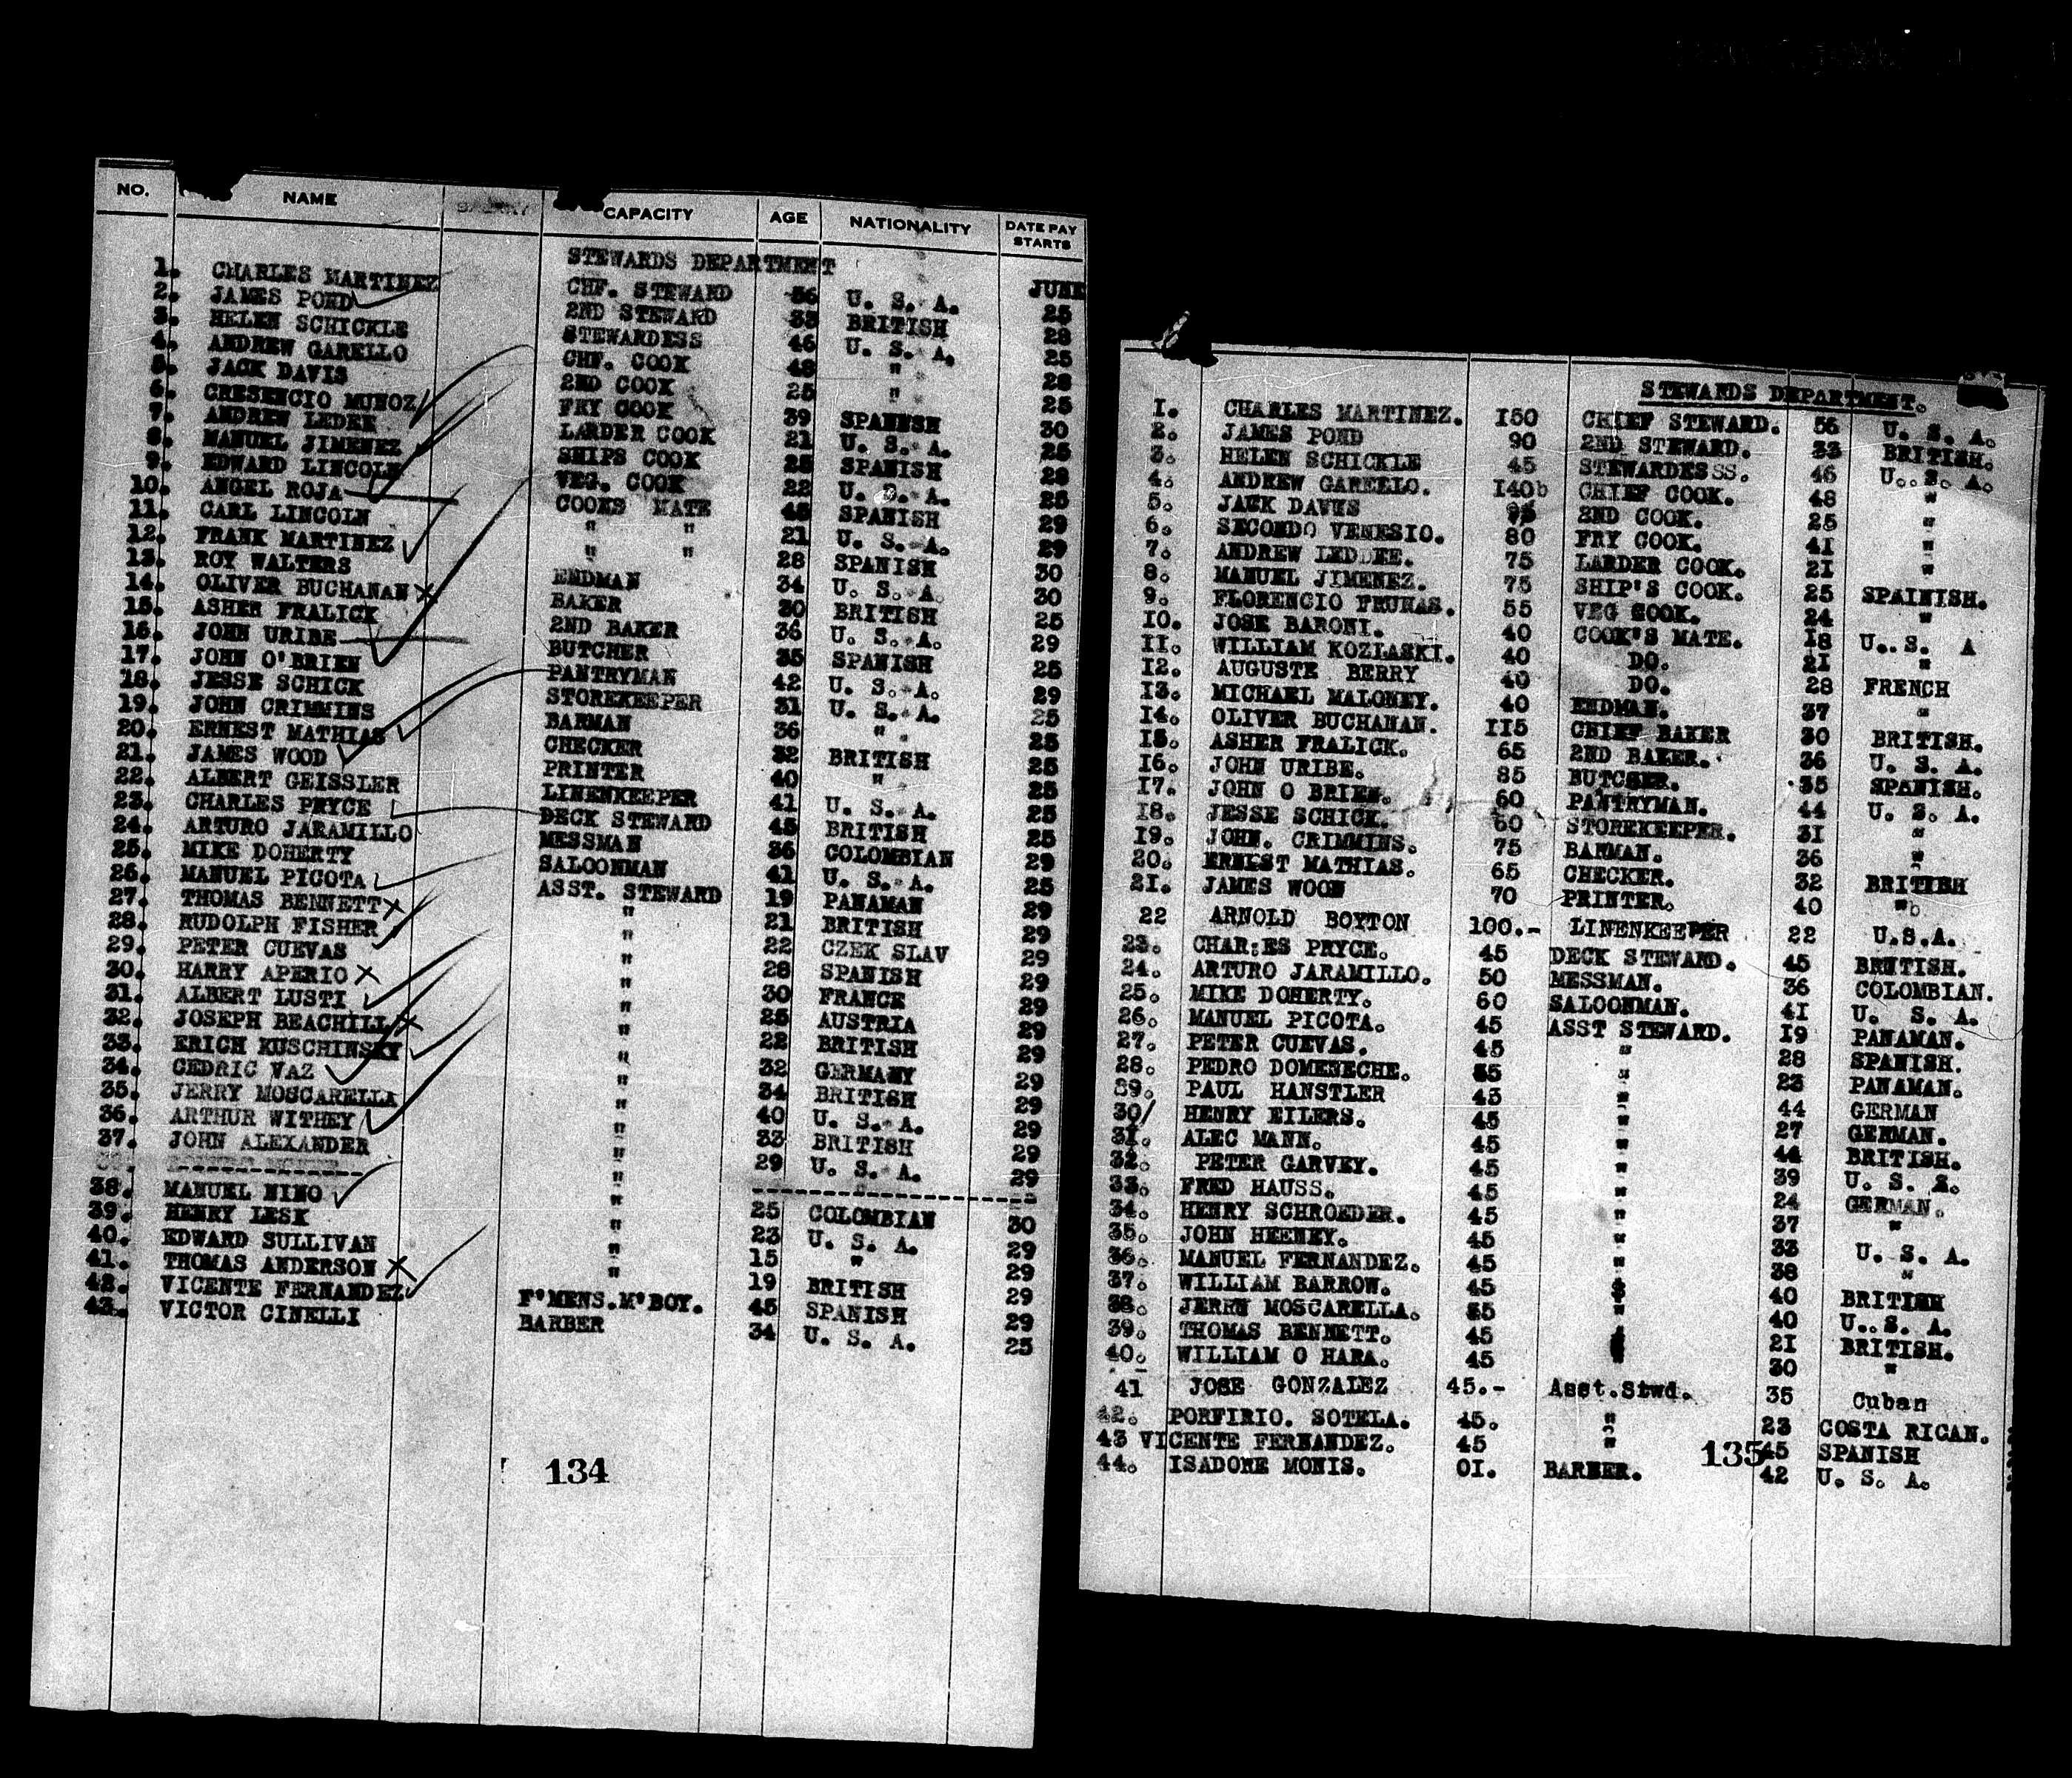 NO. NAME SALARY CAPACITY AGE NATIONALITY DATE PAY STARTS
STEWARDS DEPARTMENT JUNE
1. CHARLES MARTINEZ CHF. STEWARD 56 U. S. A. 25
2. JAMES POND 2ND STEWARD 33 BRITISH 28
3. HELEN SCHICKLE STEWARDESS 46 U. S. A. 25
4. ANDREW GARELLO CHF. COOK 48 " 28
5. JACK DAVIS 2ND COOK 25 " 25
6. CRESENCIO MUNOZ FRY COOK 39 SPANISH 30
7. ANDREW LEDEE LARDER COOK 21 U. S. A. 25
8. MANUEL JIMENEZ SHIPS COOK 25 SPANISH 28
9. EDWARD LINCOLN VEG. COOK 22 U. S. A. 25
10. ANGEL ROJA COOKS MATE 45 SPANISH 29
11. CARL LINCOLN " " 21 U. S. A. 29
12. FRANK MARTINEZ " " 28 SPANISH 30
13. ROY WALTERS ENDMAN 34 U. S. A. 30
14. OLIVER BUCHANAN BAKER 30 BRITISH 25
15. ASHER FRALICK 2ND BAKER 36 U. S. A. 29
16. JOHN URIBE BUTCHER 35 SPANISH 25
17. JOHN O'BRIEN PANTRYMAN 42 U. S. A. 29
18. JESSE SCHICK STOREKEEPER 31 U. S. A. 25
19. JOHN CRIMMINS BARMAN 36 " 25
20. ERNEST MATHIAS CHECKER 32 BRITISH 25
21. JAMES WOOD PRINTER 40 " 25
22. ALBERT GEISSLER LINENKEEPER 41 U. S. A. 25
23. CHARLES PRYCE DECK STEWARD 45 BRITISH 25
24. ARTURO JARAMILLO MESSMAN 36 COLOMBIAN 29
25. MIKE DOHERTY SALOONMAN 41 U. S. A. 25
26. MANUEL PICOTA ASST. STEWARD 19 PANAMAN 29
27. THOMAS BENNETT " 21 BRITISH 29
28. RUDOLPH FISHER " 22 CZEK SLAV 29
29. PETER CUEVAS " 28 SPANISH 29
30. HARRY APERIO " 30 FRANCE 29
31. ALBERT LUSTI " 25 AUSTRIA 29
32. JOSEPH BEACHILL " 22 BRITISH 29
33. ERICH KUSCHINSKY " 32 GERMANY 29
34. CEDRIC VAZ " 34 BRITISH 29
35. JERRY MOSCARELLA " 40 U. S. A. 29
36. ARTHUR WITHEY " 33 BRITISH 29
37. JOHN ALEXANDER " 29 U. S. A. 29
38. MANUEL NINO " 25 COLOMBIAN 30
39. HENRY LESK " 23 U. S. A. 29
40. EDWARD SULLIVAN " 15 " 29
41. THOMAS ANDERSON " 19 BRITISH 29
42. VICENTE FERNANDEZ F'MENS.M'BOY. 45 SPANISH 29
43. VICTOR CINELLI BARBER 34 U. S. A. 25
134
STEWARDS DEPARTMENT.
1. CHARLES MARTINEZ. 150 CHIEF STEWARD. 56 U. S. A.
2. JAMES POND 90 2ND STEWARD. 33 BRITISH.
3. HELEN SCHICKLE 45 STEWARDESSS. 46 U..S. A.
4. ANDREW GARELLO. 140b CHIEF COOK. 48 "
5. JACK DAVIS 2ND COOK. 25 "
6. SECONDO VENESIO. 80 FRY COOK. 41 "
7. ANDREW LEDDEE. 75 LARDER COOK. 21 "
8. MANUEL JIMENEZ. 75 SHIP'S COOK. 25 SPAINISH.
9. FLORENCIO FRUHAS. 55 VEG COOK. 24 "
10. JOSE BARONI. 40 COOK'S MATE. 18 U..S. A
11. WILLIAM KOZLASKI. 40 DO. 21 "
12. AUGUSTE BERRY 40 DO. 28 FRENCH
13. MICHAEL MALONEY. 40 ENDMAN. 37 "
14. OLIVER BUCHANAN. 115 CHIEF BAKER 30 BRITISH.
15. ASHER FRALICK. 65 2ND BAKER. 36 U. S. A.
16. JOHN URIBE. 85 BUTCHER. 35 SPANISH.
17. JOHN O BRIEN. 60 PANTRYMAN. 44 U. S. A.
18. JESSE SCHICK. 60 STOREKEEPER. 31 "
19. JOHN. CRIMMINS. 75 BARMAN. 36 "
20. ERNEST MATHIAS. 65 CHECKER. 32 BRITISH
21. JAMES WOOD 70 PRINTER. 40 "
22 ARNOLD BOYTON 100.- LINENKEEPER 22 U.S.A.
23. CHAR:ES PRYCE. 45 DECK STEWARD. 45 BRITISH.
24. ARTURO JARAMILLO. 50 MESSMAN. 36 COLOMBIAN.
25. MIKE DOHERTY. 60 SALOONMAN. 41 U. S. A.
26. MANUEL PICOTA. 45 ASST STEWARD. 19 PANAMAN.
27. PETER CUEVAS. 45 " 28 SPANISH.
28. PEDRO DOMENECHE. 35 " 23 PANAMAN.
89. PAUL HANSTLER 45 " 44 GERMAN
30/ HENRY EILERS. 45 " 27 GERMAN.
31. ALEC MANN. 45 " 44 BRITISH.
32. PETER GARVEY. 45 " 39 U. S. A.
33. FRED HAUSS. 45 " 24 GERMAN.
34. HENRY SCHROEDER. 45 " 37 "
35. JOHN HEENEY. 45 " 33 U. S. A.
36. MANUEL FERNANDEZ. 45 " 38 "
37. WILLIAM BARROW. 45 " 40 BRITISH
38. JERRY MOSCARELLA. 35 " 40 U..S. A.
39. THOMAS BENNETT. 45 " 21 BRITISH.
40. WILLIAM O HARA. 45 " 30 "
41 JOSE GONZALEZ 45.- Asst.Stwd. 35 Cuban
42. PORFIRIO. SOTELA. 45. " 23 COSTA RICAN.
43 VICENTE FERNANDEZ. 45 " 45 SPANISH
44. ISADORE MONIS. 01. BARBER. 42 U. S. A.
135